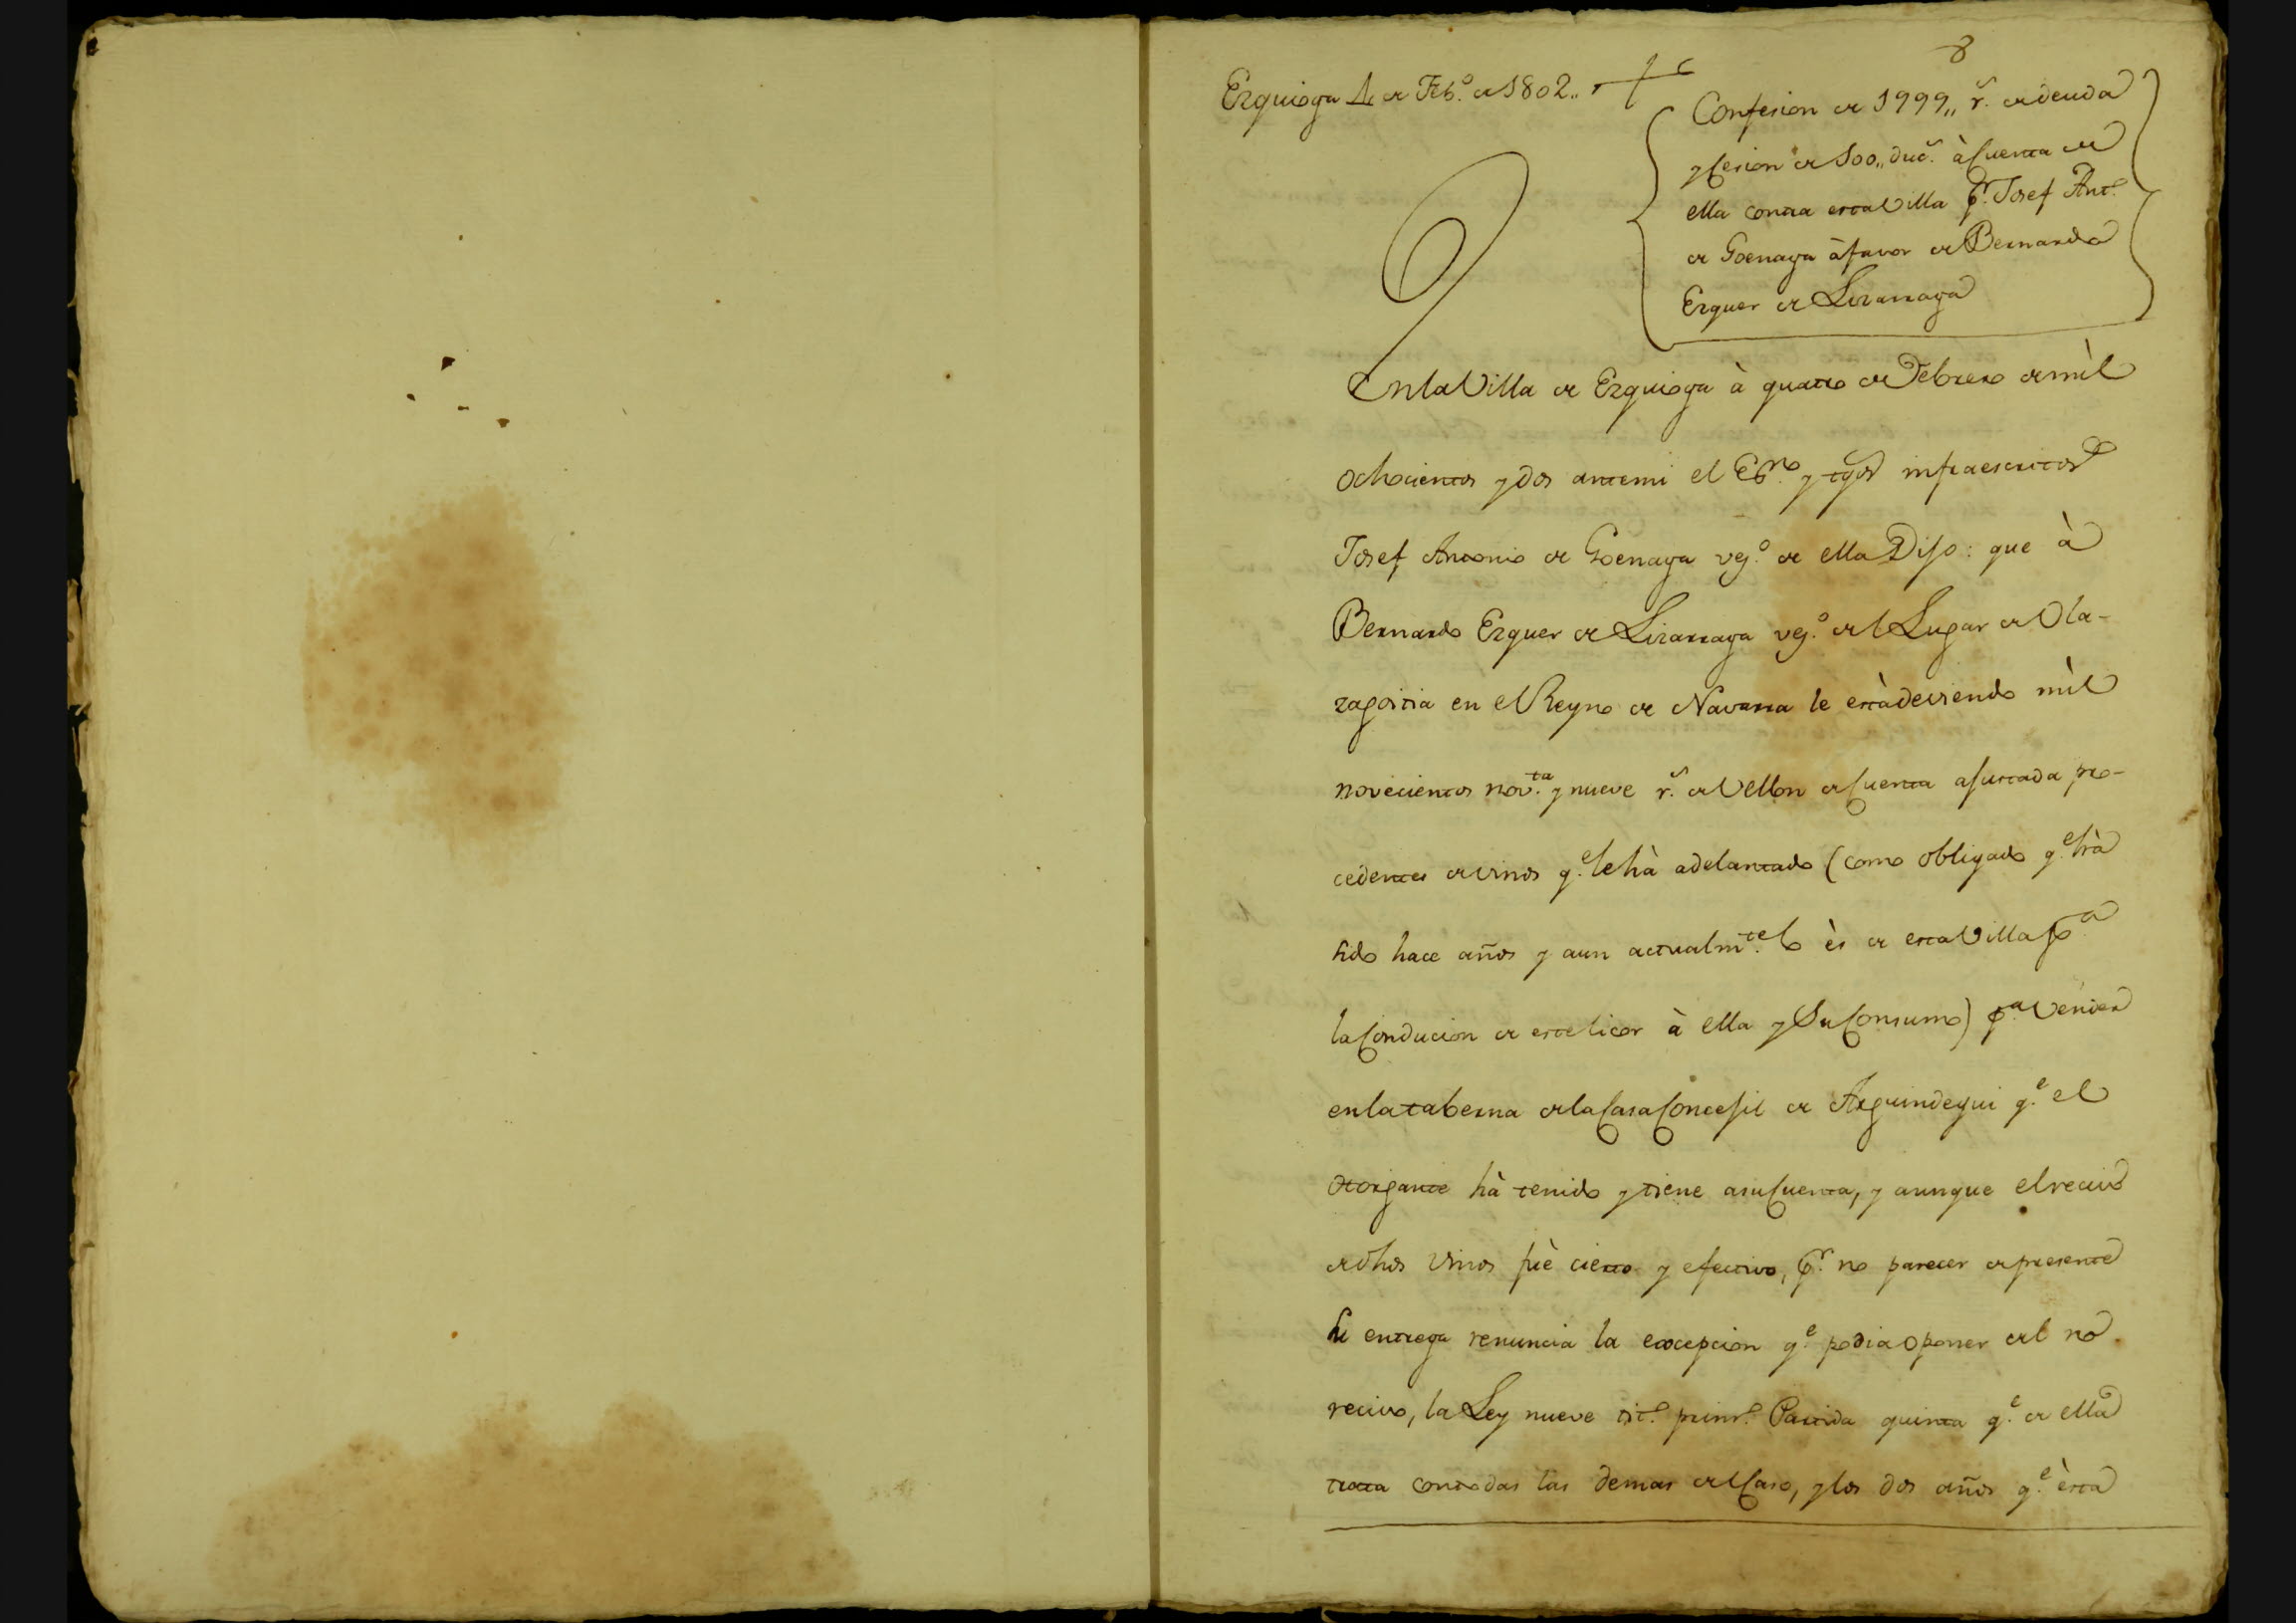 8
Ezquioga 4 de Feb.º de 1802,,
Confesion de 1999,, r.s de deuda
y Cesion de 100,, duc.s à Cuenta de
ella contra esta Villa p.r Josef Ant.º
de Goenaga à favor de Bernardo
Ezquer de Lizarraga
En la Villa de Ezquioga à quatro de Febrero de mìl
ochocientos y dos antemi el Es.no y tgos infraescritos
Josef Antonio de Goenaga vez.º de ella Dijo: que à
Bernardo Ezquer de Lizarraga vez.º del Lugar de Ola-
zagoitia en el Reyno de Navarra le està deviendo mìl
novecientos nov.ta y nueve r.s de Vellon de Cuenta ajustada pro-
cedentes de vinos q.e le hà adelantado (como obligado q.e hà
sido hace años y aun actualm.te lo ès de esta Villa p.a
la Conducion de este licor à ella y Su Consumo) p.a Vender
en la taberna de la Casa Concejil de Arguindegui q.e el
otorgante hà tenido y tiene a su Cuenta, y aunque el recivo
de dhos vinos fuè cierto y efectivo, p.r no parecer de presente
su entrega renuncia la excepcion q.e podia oponer del no
recivo, la Ley nueve tit.º prim.º Partida quinta q.e de ella
trata con todas las demas del Caso, y los dos años q.e èsta